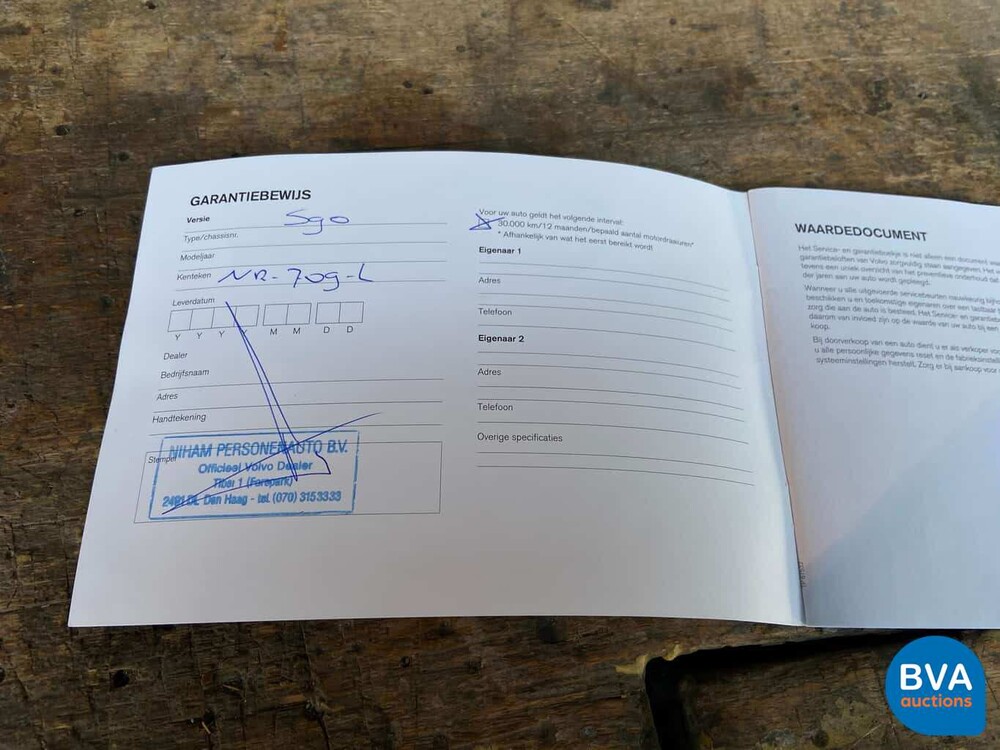 GARANTIEBEWIJS
Versie
S90
Type/chassisnr.
Modeljaar
Kenteken NR-709-L
Leverdatum
Y Y Y Y M M D D
Dealer
Bedrijfsnaam
Adres
Handtekening
Stempel
NIHAM PERSONENAUTO B.V.
Officieel Volvo Dealer
Titan 1 (Forepark)
2491 DL Den Haag - tel. (070) 3153333
Voor uw auto geldt het volgende interval:
30.000 km/12 maanden/bepaald aantal motordraaiuren*
* Afhankelijk van wat het eerst bereikt wordt
Eigenaar 1
Adres
Telefoon
Eigenaar 2
Adres
Telefoon
Overige specificaties
WAARDEDOCUMENT
Het Service- en garantieboekje is niet alleen een document waar
garantiebeloften van Volvo zorgvuldig staan aangegeven. Het
tevens een uniek overzicht van het preventieve onderhoud dat
der jaren aan uw auto wordt gepleegd.
Wanneer u alle uitgevoerde servicebeurten nauwkeurig
beschikken u en toekomstige eigenaren over een tastbaar
zorg die aan de auto is besteed. Het Service- en
daarom van invloed zijn op de waarde van uw auto bij een
koop.
Bij doorverkoop van een auto dient u er als verkoper
u alle persoonlijke gegevens reset en de
systeeminstellingen herstelt. Zorg er bij aankoop voor
BVA
auctions